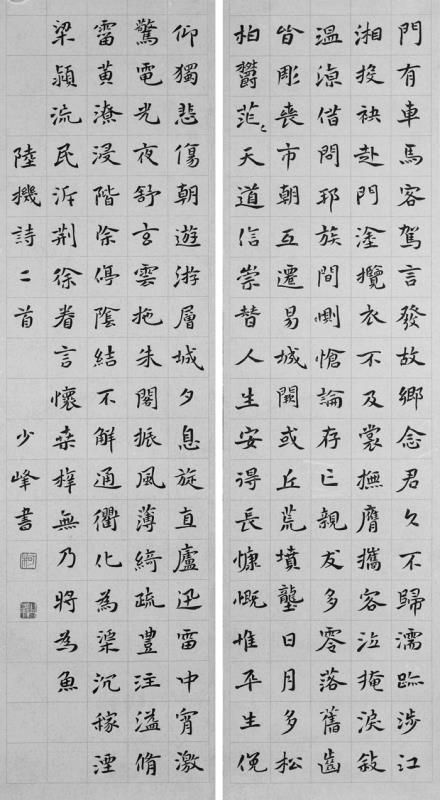 門有車馬客駕言發故鄉念君久不歸濡跡涉江
湘投袂赴門塗攬衣不及裳撫膺攜客泣掩淚敘
溫涼借問邦族間惻愴論存亡親友多零落舊齒
皆彫喪市朝互遷易城闕或丘荒墳壟日月多松
柏鬱茫〻天道信崇替人生安得長慷慨惟平生俛
仰獨悲傷朝遊游層城夕息旋直廬迅雷中宵激
驚電光夜舒玄雲拖朱閣振風薄綺疏豐注溢脩
霤黃潦浸階除停陰結不解通衢化為渠沉稼湮
梁潁流民泝荆徐眷言懷桑梓無乃將為魚
陸機詩二首 少峰書